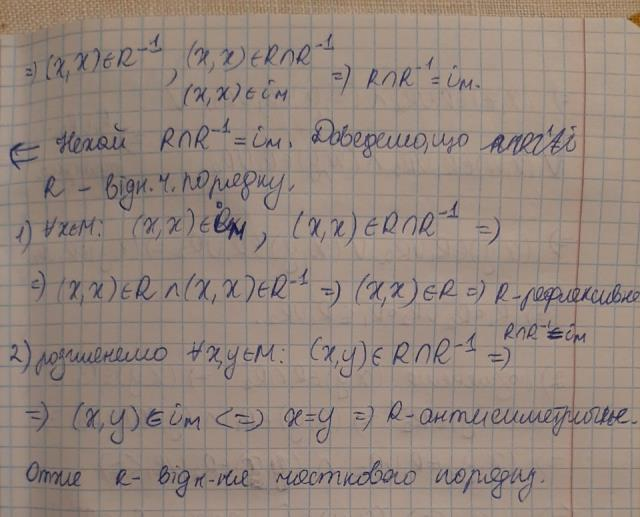 => (x,x)∈R⁻¹, (x,x)∈R∩R⁻¹ => R∩R⁻¹=iм.
(x,x)∈iм
⇐ Нехай R∩R⁻¹=iм. Доведемо, що
R – відн. ч. порядку.
1) ∀x∈M: (x,x)∈iм, (x,x)∈R∩R⁻¹ =>
=> (x,x)∈R ∧ (x,x)∈R⁻¹ => (x,x)∈R => R-рефлексивне
2) розглянемо ∀x,y∈M: (x,y)∈R∩R⁻¹ => R∩R⁻¹=iм
=> (x,y)∈iм <=> x=y => R-антисиметричне.
Отже R- відн-ня часткового порядку.